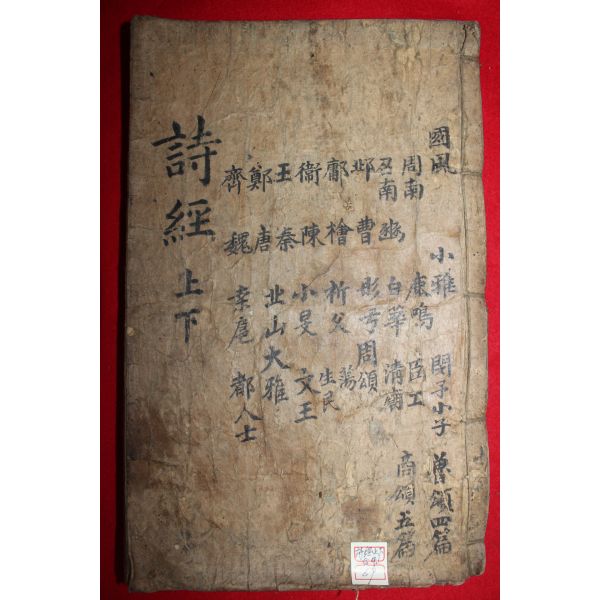 詩經 上下
國風 小雅 閔予小子 魯頌四篇
周南 鹿鳴 臣工 商頌五篇
召南 豳 白華 清廟
邶 曹 彤弓 周頌
鄘 檜 祈父 生民 蕩
衛 陳 小旻 文王
王 秦 北山 大雅
鄭 唐
齊 魏 桑扈 都人士